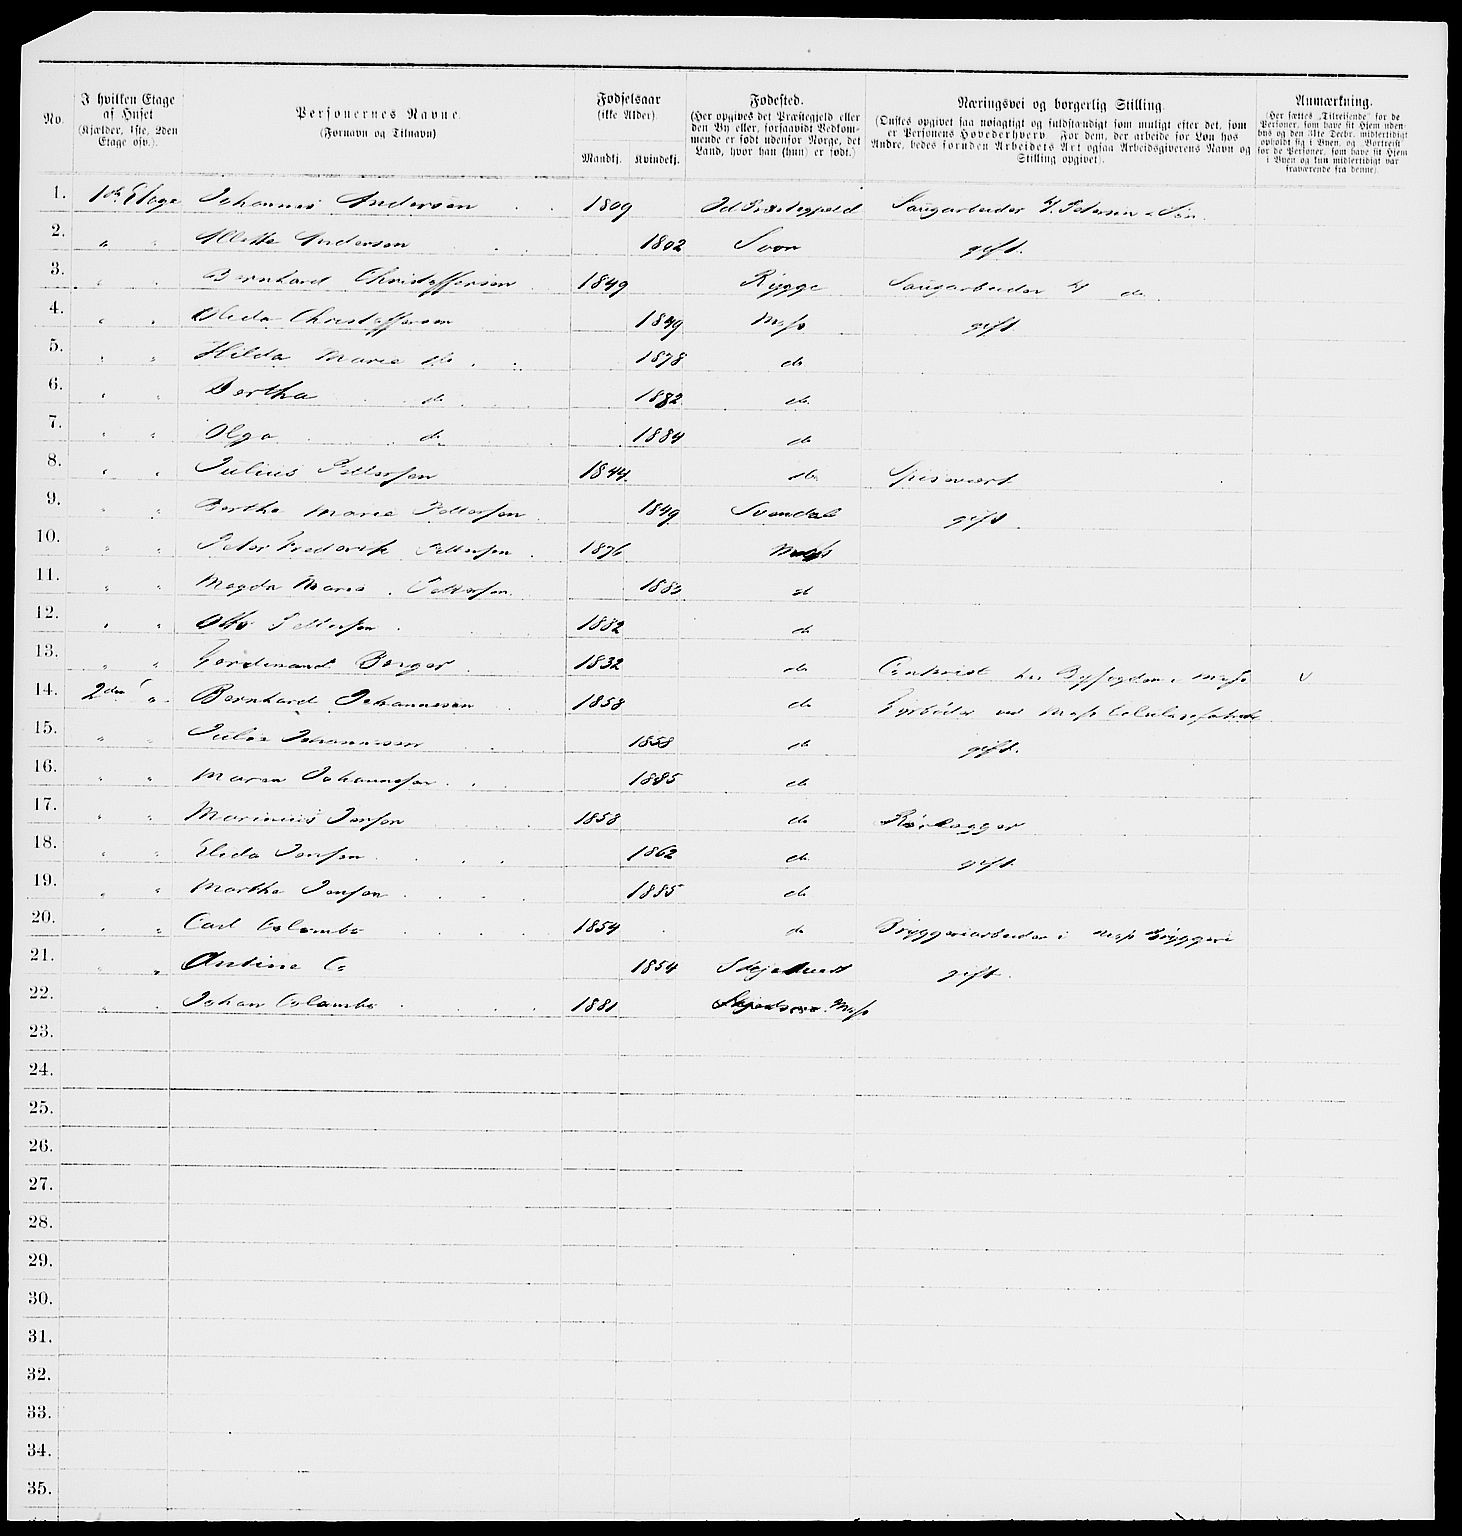 No.
I hvilken Etage
af Huset
(Kjælder, 1ste, 2den
Etage osv.).
Personernes Navne.
(Fornavn og Tilnavn)
Fødselsaar
(ikke Alder).
Mandkj. Kvindekj.
Fødested.
(Her opgives det Præstegjeld eller
den By eller, forsaavidt Vedkom-
mende er født udenfor Norge, det
Land, hvor han (hun) er født.)
Næringsvei og borgerlig Stilling.
(Ønskes opgivet saa nøiagtigt og fuldstændigt som muligt efter det, som
er Personens Hovederhverv. For dem, der arbeide for Løn hos
Andre, bedes foruden Arbeidets Art ogsaa Arbeidsgiverens Navn og
Stilling opgivet).
Anmærkning.
(Her sættes „Tilreisende" for de
Personer, som have sit Hjem uden-
bys og den 31te Decbr. midlertidigt
opholdt sig i Byen, og „Bortreist"
for de Personer, som have sit Hjem
i Byen og kun midlertidigt var
fraværende fra denne).
1. 1ste Etage Johannes Andersen 1809 Id Præstegjeld Saugarbeider Petersen & Søn
2. " " Andersen 1802 gift.
3. " " Bernhard Christoffersen 1849 Rygge Saugarbeider do
4. " " Christoffersen 1849 Moss gift
5. " " Hilda Marie do 1878 do
6. " " Bertha do 1882 do
7. " " Olga do 1884 do
8. " " Julius Pettersen 1844 do Spisevært
9. " " Berthe Marie Pettersen 1849 Svendal gift
10. " " Peter Frederik Pettersen 1876 Moss
11. " " Magda Marie Pettersen 1880 do
12. " " Otto Pettersen 1882 do
13. " " Ferdinand Berger 1832 do Contorist hos Byfogden i Moss v
14. 2den " Bernhard Johannesen 1858 do Fyrbøder ved Moss
15. " " Julie Johannesen 1858 do gift.
16. " " Maren Johannesen 1885 do
17. " " Marinius Jensen 1858 do Rørlægger
18. " " Elida Jensen 1862 do gift
19. " " Marthe Jensen 1885 do
20. " " Carl Colombo 1854 do Bryggeriarbeider i Moss Bryggeri
21. " " Antine Co 1854 gift
22. " " Johan Colombo 1881 Moss
23.
24.
25.
26.
27.
28.
29.
30.
31.
32.
33.
34.
35.